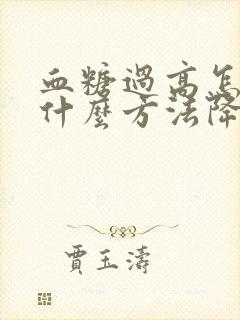 血糖過高怎
什麼方法降
賈玉濤